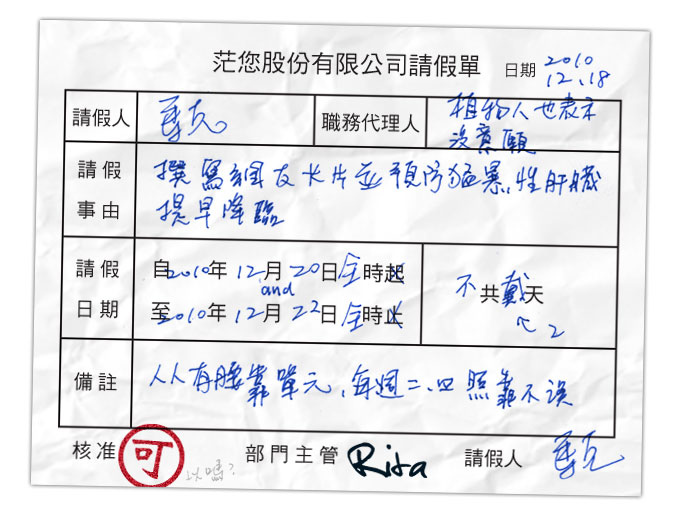 茫您股份有限公司請假單 日期 2010
12.18
請假人 馬克 職務代理人 植物人也表示
沒意願
請假 撰寫網友卡片並預防猛暴性肝臟
事由 提早降臨
請假 自2010年12月20日全時起
and
日期 至2010年12月22日全時止
不共戴天
2
備註 人人有腰靠單元,每週二、四照靠不誤
核准 可 以嗎? 部門主管 Rita 請假人 馬克